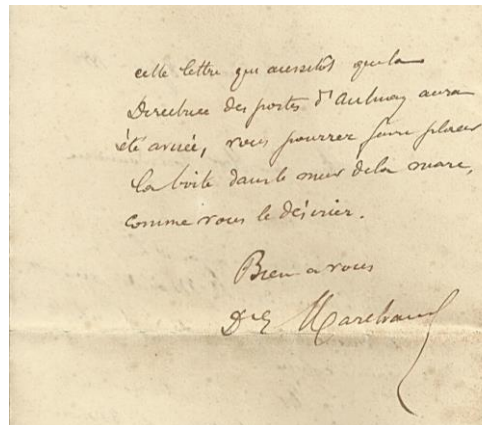 cette lettre que aussitôt que la
Directrice des postes d'Aulnay aura
été avisée, vous pourrez faire placer
la boite dans le mur de la mare,
comme vous le désirier.
Bien a vous
Marchand